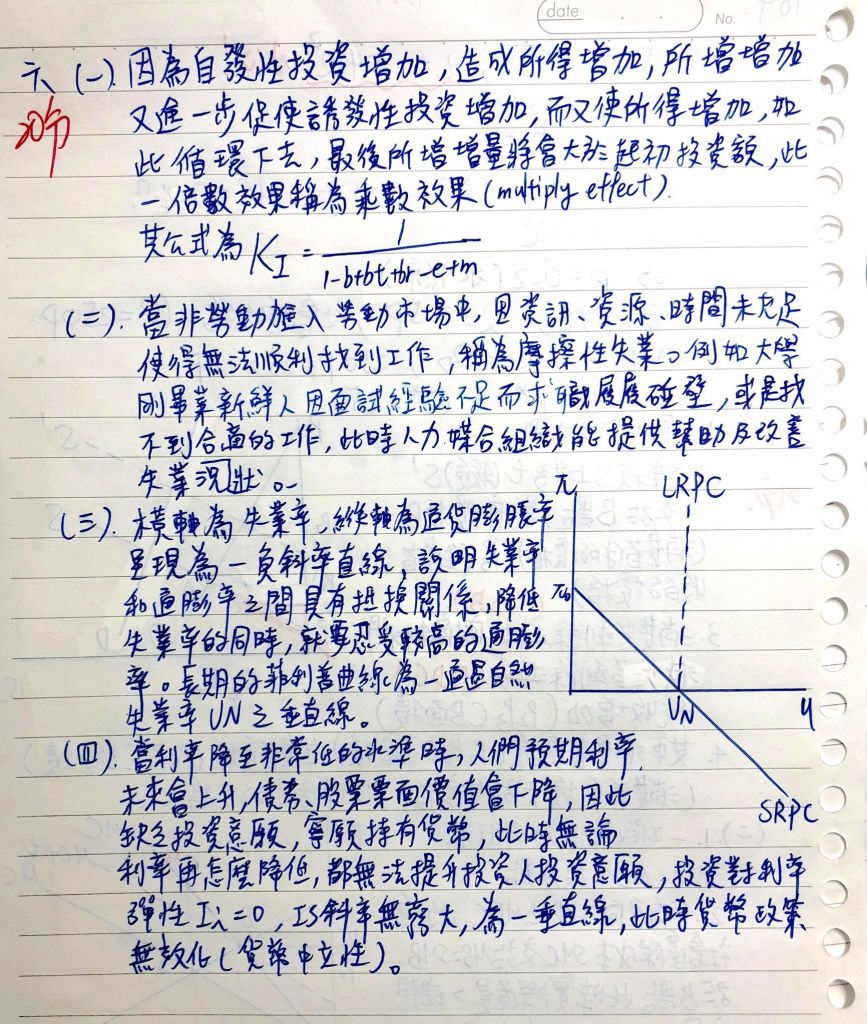 date
No.
六、(一). 因為自發性投資增加, 造成所得增加, 所增增加
20分
又進一步促使誘發性投資增加, 而又使所得增加, 如
此循環下去, 最後所增增量將會大於起初投資額, 此
一倍數效果稱為乘數效果(multiply effect).
其公式為 K_I = 1/(1-b+bt+br-e+m)
(二). 當非勞動進入勞動市場中, 因資訊、資源、時間未充足
使得無法順利找到工作, 稱為摩擦性失業。例如大學
剛畢業新鮮人因面試經驗不足而求職屢屢碰壁, 或是找
不到合適的工作, 此時人力媒合組織能提供幫助及改善
失業況狀。
(三). 橫軸為失業率, 縱軸為通貨膨脹率
呈現為一負斜率直線, 說明失業率
和通膨率之間具有抵換關係, 降低
失業率的同時, 就要忍受較高的通膨
率。長期的菲利普曲線為一通過自然
失業率UN之垂直線。
π
LRPC
π₀
UN
u
SRPC
(四). 當利率降至非常低的水準時, 人們預期利率
未來會上升, 債券、股票票面價值會下降, 因此
缺乏投資意願, 寧願持有貨幣, 此時無論
利率再怎麼降低, 都無法提升投資人投資意願, 投資對利率
彈性 Ii=0, IS斜率無窮大, 為一垂直線, 此時貨幣政策
無效化(貨幣中立性)。